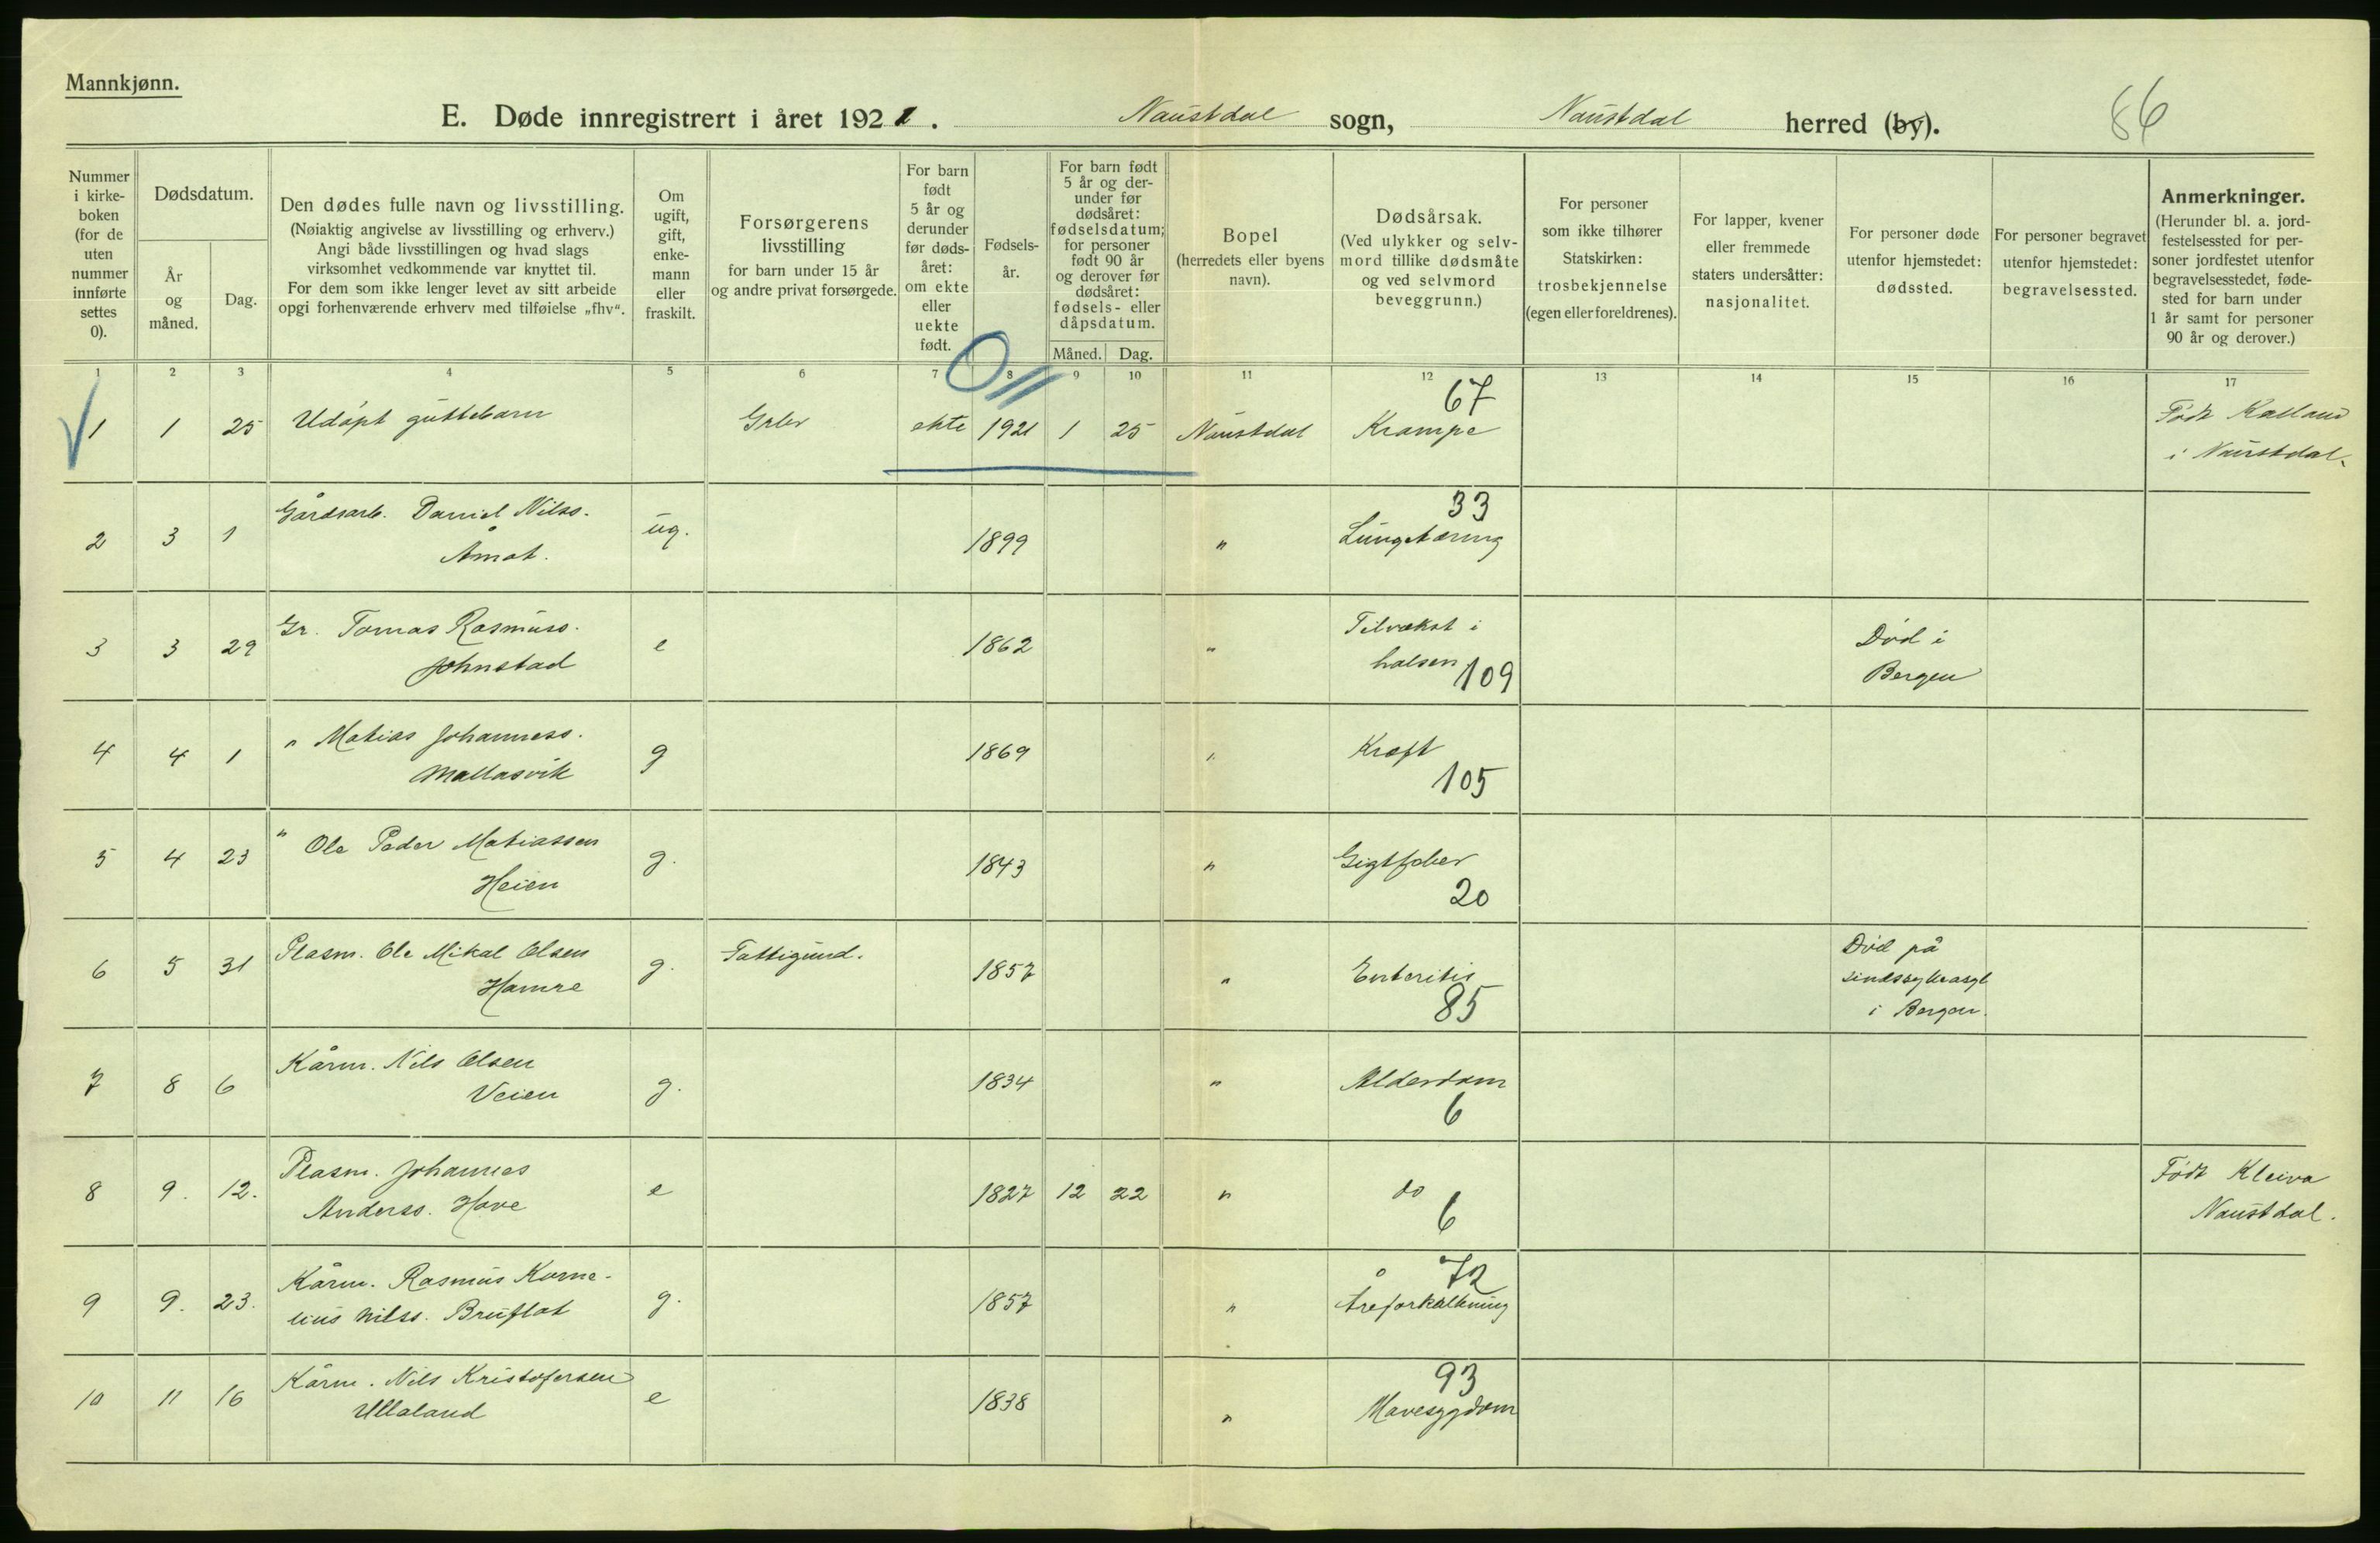 Mannkjønn.
E. Døde innregistrert i året 1921. Naustdal sogn, Naustdal herred (by). 86
Nummer i kirkeboken (for de uten nummer innførte settes 0).
Dødsdatum.
År og måned.
Dag.
Den dødes fulle navn og livsstilling.
(Nøiaktig angivelse av livsstilling og erhverv.)
Angi både livsstillingen og hvad slags
virksomhet vedkommende var knyttet til.
For dem som ikke lenger levet av sitt arbeide
opgi forhenværende erhverv med tilføielse „fhv“.
Om ugift, gift, enkemann eller fraskilt.
Forsørgerens
livsstilling
for barn under 15 år
og andre privat forsørgede.
For barn født 5 år og derunder før dødsåret: om ekte eller uekte født.
Fødselsår.
For barn født 5 år og derunder før dødsåret: fødselsdatum; for personer født 90 år og derover før dødsåret: fødsels- eller dåpsdatum.
Måned. Dag.
Bopel
(herredets eller byens
navn).
Dødsårsak.
(Ved ulykker og selv-
mord tillike dødsmåte
og ved selvmord
beveggrunn.)
For personer
som ikke tilhører
Statskirken:
trosbekjennelse
(egen eller foreldrenes).
For lapper, kvener
eller fremmede
staters undersåtter:
nasjonalitet.
For personer døde
utenfor hjemstedet:
dødssted.
For personer begravet
utenfor hjemstedet:
begravelsessted.
Anmerkninger.
(Herunder bl. a. jord-
festelsessted for per-
soner jordfestet utenfor
begravelsesstedet, føde-
sted for barn under
1 år samt for personer
90 år og derover.)
1 2 3 4 5 6 7 8 9 10 11 12 13 14 15 16 17
1 1 25 Udøpt guttebarn Grbr ekte 1921 1 25 Naustdal 67 Krampe Født Kalland
i Naustdal.
2 3 1 Gårdsarb. Daniel Nilss.
Åmot. ug. 1899 " 33 Lungetæring
3 3 29 Gr. Tomas Rasmuss.
Johnstad e 1862 " Tilvækst i
halsen 109 Død i
Bergen
4 4 1 " Matias Johanness.
Mallasvik g 1869 " Kræft
105
5 4 23 " Ole Peder Matiassen
Heien g. 1843 " Gigtfeber
20
6 5 31 Plasm. Ole Mikal Olsen
Hamre g. Fattigund. 1857 " Enteritis
85 Død på
sindssykeasyl
i Bergen.
7 8 6 Kårm. Nils Olsen
Veien g. 1834 " Alderdom
6
8 9. 12. Plasm. Johannes
Anderss. Hove e 1827 12 22 " do
6 Født Kleiva
Naustdal.
9 9. 23. Kårm. Rasmus Korne-
lius Nilss. Bruflot g. 1857 " 72
Åreforkalkning
10 11 16 Kårm. Nils Kristofersen
Ullaland e 1838 " 93
Mavesygdom